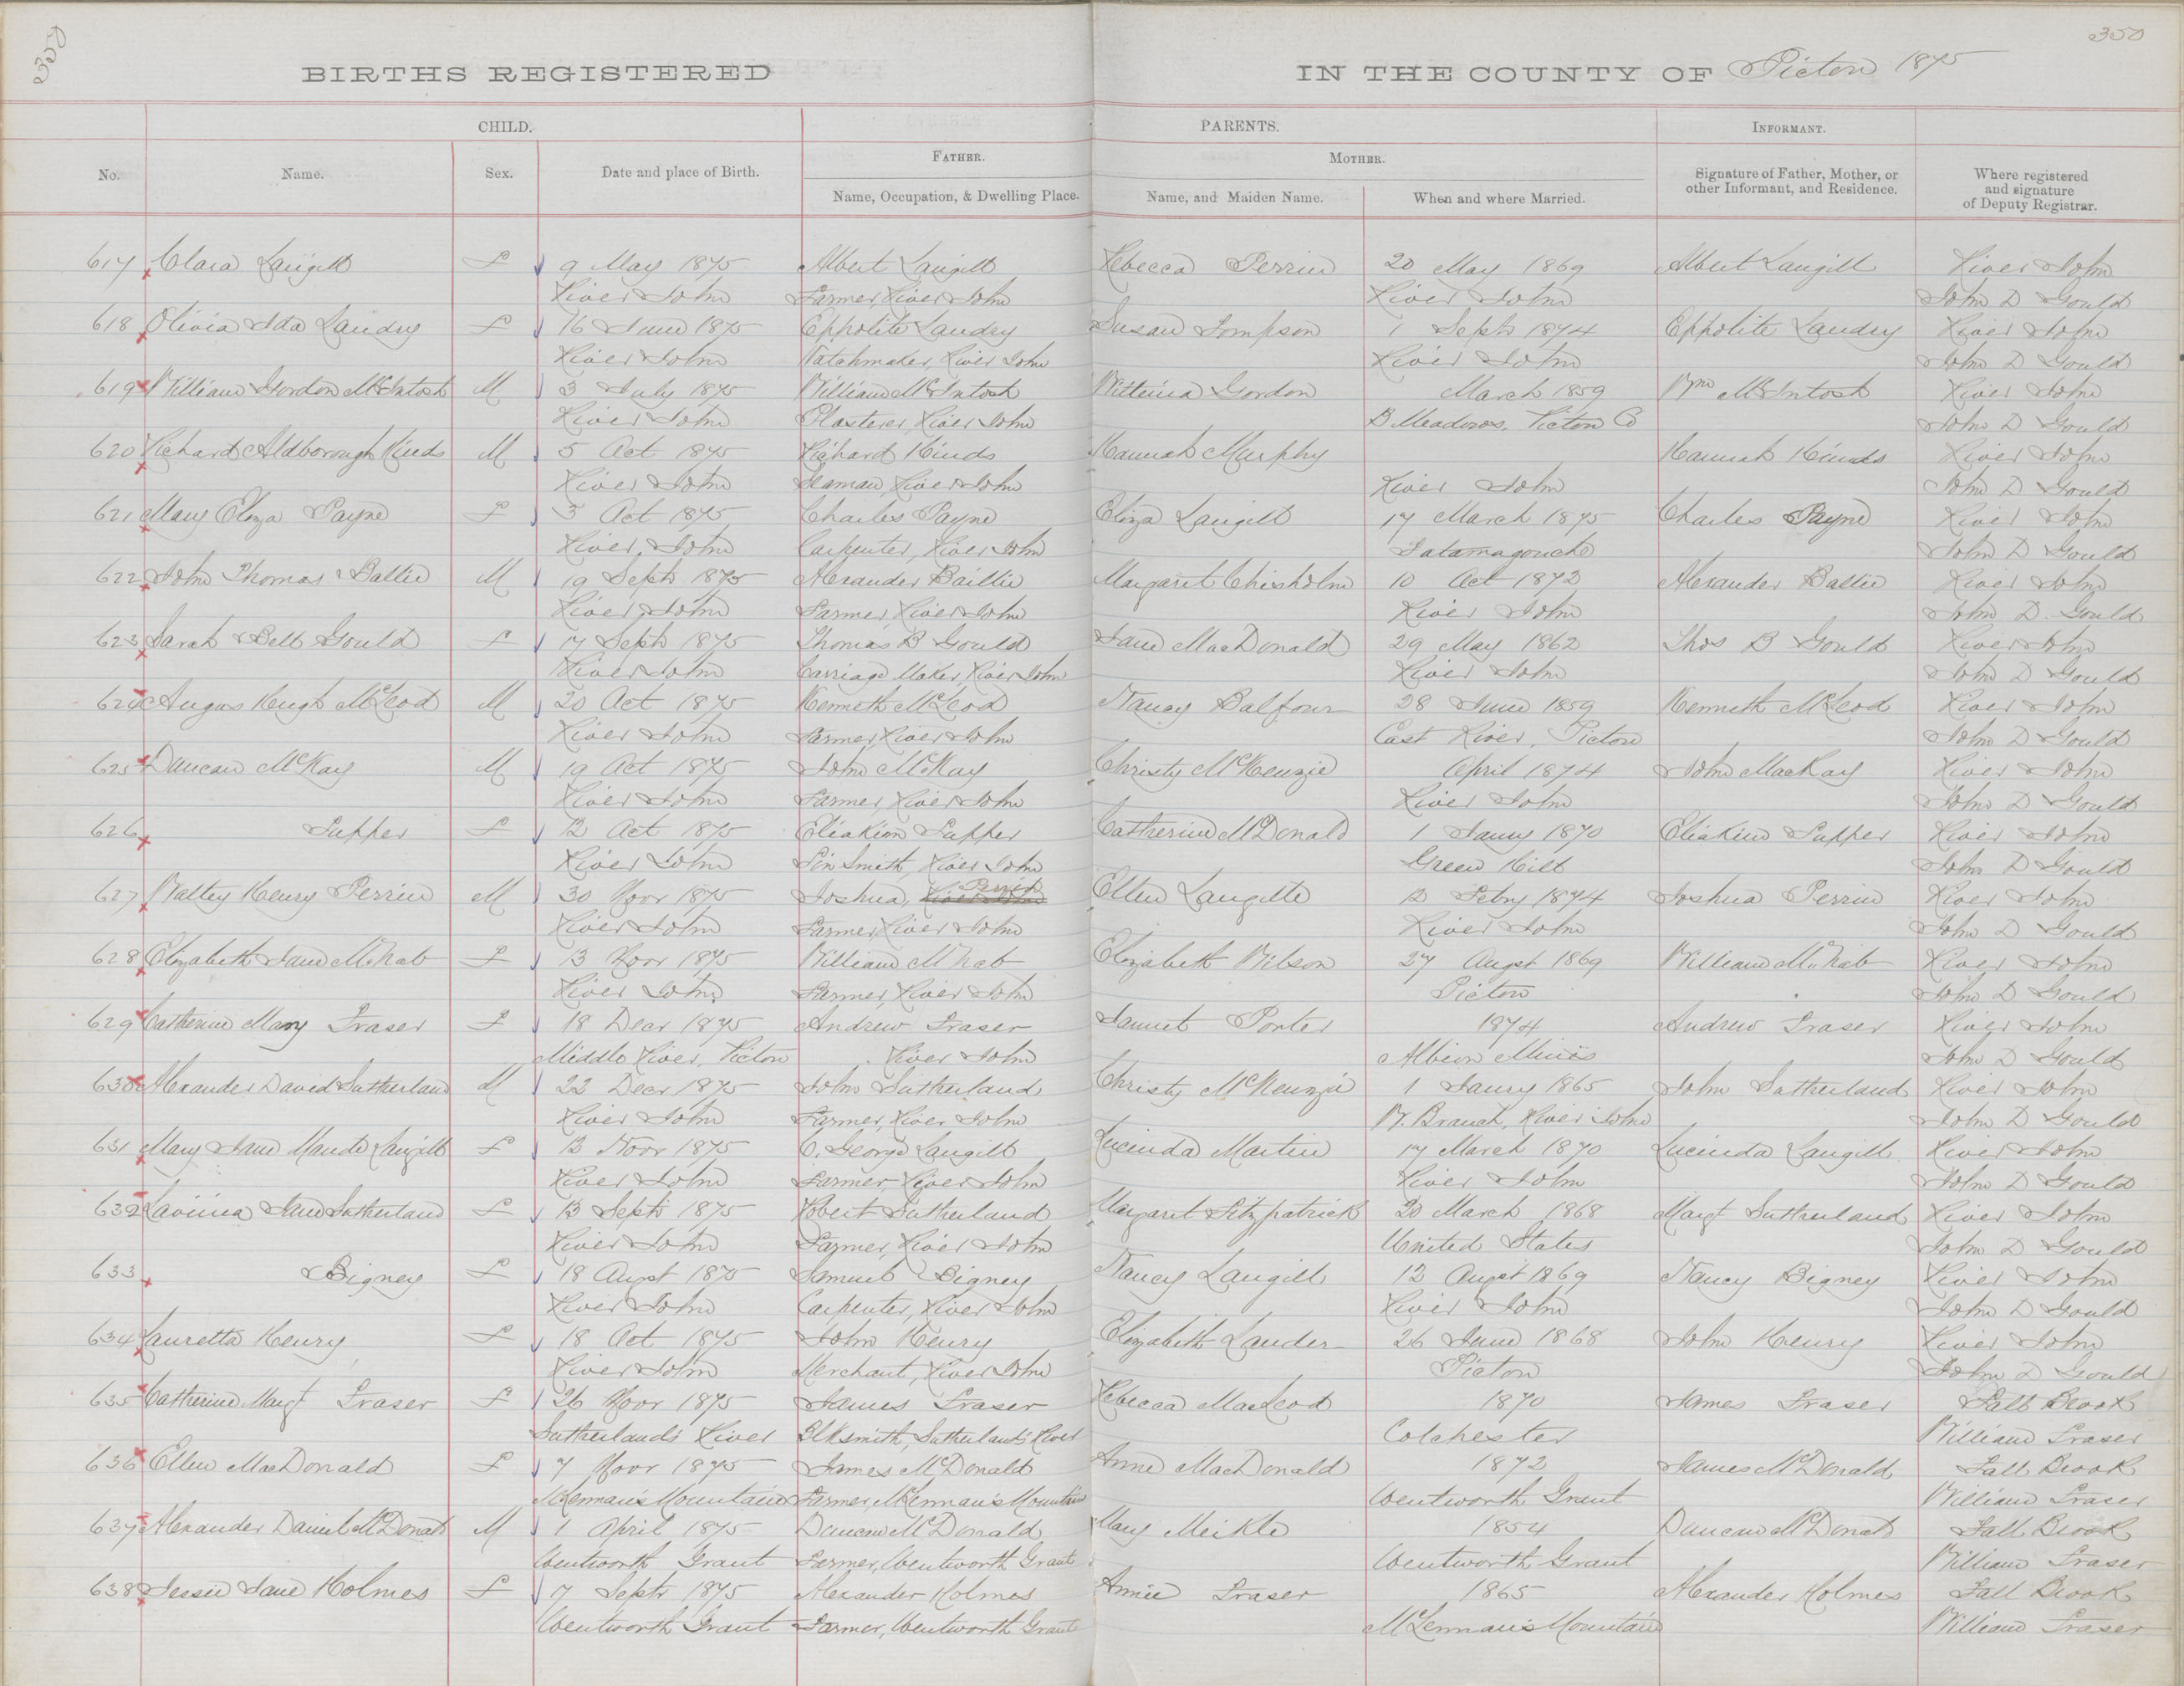 350
350
BIRTHS REGISTERED IN THE COUNTY OF Picton 1875
CHILD. PARENTS. INFORMANT.
FATHER. MOTHER.
No. Name. Sex. Date and place of Birth. Name, Occupation, & Dwelling Place. Name, and Maiden Name. When and where Married. Signature of Father, Mother, or other Informant, and Residence. Where registered and signature of Deputy Registrar.
617 Clara Langill F 9 May 1875 Albert Langill Rebecca Perrin 20 May 1869 Albert Langill River John
River John Farmer, River John River John John D Gould
618 Olivia Ida Landry F 16 June 1875 Eppolite Landry Susan Tompson 1 Sept 1874 Eppolite Landry River John
River John Watchmaker, River John River John John D Gould
619 William Gordon McIntosh M 3 July 1875 William McIntosh Gordon March 1859 Wm McIntosh River John
River John Plasterer, River John B. Meadows, Picton Co John D Gould
620 Richard Aldborough Hinds M 5 Oct 1875 Richard Hinds Hannah Murphy Hannah Hinds River John
River John Seaman, River John River John John D Gould
621 Mary Eliza Payne F 3 Oct 1875 Charles Payne Eliza Langill 17 March 1875 Charles Payne River John
River John Carpenter, River John Tatamagouche John D Gould
622 John Thomas Ballie M 19 Sept 1875 Alexander Baillie Margaret Chisholm 10 Oct 1872 Alexander Ballie River John
River John Farmer, River John River John John D Gould
623 Sarah Bell Gould F 17 Sept 1875 Thomas B Gould Jane MacDonald 29 May 1862 Thos B Gould River John
River John Carriage Maker, River John River John John D Gould
624 Angus Hugh McLeod M 20 Oct 1875 Kenneth McLeod Nancy Balfour 28 June 1859 Kenneth McLeod River John
River John Farmer, River John East River, Picton John D Gould
625 Duncan McKay M 19 Oct 1875 John McKay Christy McKenzie April 1874 John MacKay River John
River John Farmer, River John River John John D Gould
626 Tupper F 12 Oct 1875 Eliakim Tupper Catherine McDonald 1 Jany 1870 Eliakim Tupper River John
River John Tin Smith, River John Green Hill John D Gould
627 Walter Henry Perrin M 30 Novr 1875 Joshua, Perrin Ellen Langille 12 Feby 1874 Joshua Perrin River John
River John Farmer, River John River John John D Gould
628 Elizabeth Jane McNab F 13 Novr 1875 William McNab Elizabeth Wilson 27 Augst 1869 William McNab River John
River John Farmer, River John Picton John D Gould
629 Catherine Mary Fraser F 18 Decr 1875 Andrew Fraser Janet Porter 1874 Andrew Fraser River John
Middle River, Picton River John Albion Mines John D Gould
630 Alexander David Sutherland M 22 Decr 1875 John Sutherland Christy McKenzie 1 Jany 1865 John Sutherland River John
River John Farmer, River John W. Branch, River John John D Gould
631 Mary Jane Maude Langill F 13 Novr 1875 C. George Langill Lucinda Martin 17 March 1870 Lucinda Langill River John
River John Farmer, River John River John John D Gould
632 Lavinia Jane Sutherland F 13 Sept 1875 Robert Sutherland Margaret Fitzpatrick 20 March 1868 Margt Sutherland River John
River John Farmer, River John United States John D Gould
633 Bigney F 18 Augst 1875 Samuel Bigney Nancy Langill 12 Augst 1869 Nancy Bigney River John
River John Carpenter, River John River John John D Gould
634 Lauretta Henry F 18 Oct 1875 John Henry Elizabeth Lauder 26 June 1868 John Henry River John
River John Merchant, River John Picton John D Gould
635 Catherine Margt Fraser F 26 Novr 1875 James Fraser Rebecca MacLeod 1870 James Fraser Fall Brook
Sutherland's River Blksmith, Sutherland's River Colchester William Fraser
636 Ellen MacDonald F 7 Novr 1875 James McDonald Anne MacDonald 1872 James McDonald Fall Brook
McLennan's Mountain Farmer, McLennan's Mountain Wentworth Grant William Fraser
637 Alexander Daniel McDonald M 1 April 1875 Duncan McDonald Mary Meikle 1854 Duncan McDonald Fall Brook
Wentworth Grant Farmer, Wentworth Grant Wentworth Grant William Fraser
638 Jessie Jane Holmes F 7 Septr 1875 Alexander Holmes Annie Fraser 1865 Alexander Holmes Fall Brook
Wentworth Grant Farmer, Wentworth Grant McLennan's Mountain William Fraser